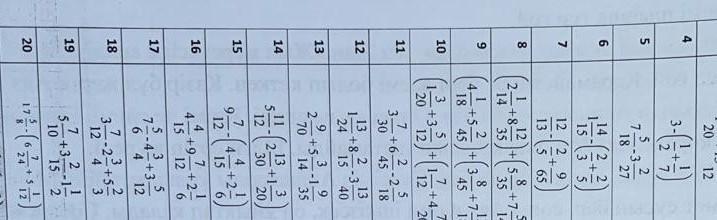 20 12
4 3-(1/2+1/7)
5 7 5/18-3 2/27
6 1 14/15-(2/3+2/5)
7 12/13-(2/5+9/65)
8 (2 1/14+8 12/35)+(5 8/35+7
9 (4 1/18+5 2/45)+(3 8/45+7
10 (1 3/20+2 5/12)+(7 1/12+4
11 3 7/30+6 2/45-2 5/18
12 1 13/24+8 2/15-3 13/40
13 2 9/70+5 3/14-1 9/35
14 5 11/12-(2 13/30+1 3/20)
15 9 7/12-(4 4/15+2 1/6)
16 4 4/15+9 7/12+2 1/6
17 7 5/6-4 3/4+3 5/12
18 3 7/12-2 3/4+5 2/3
19 5 7/10+3 2/15-1 1/2
20 17 5/8-(6 7/24+3 1/12)